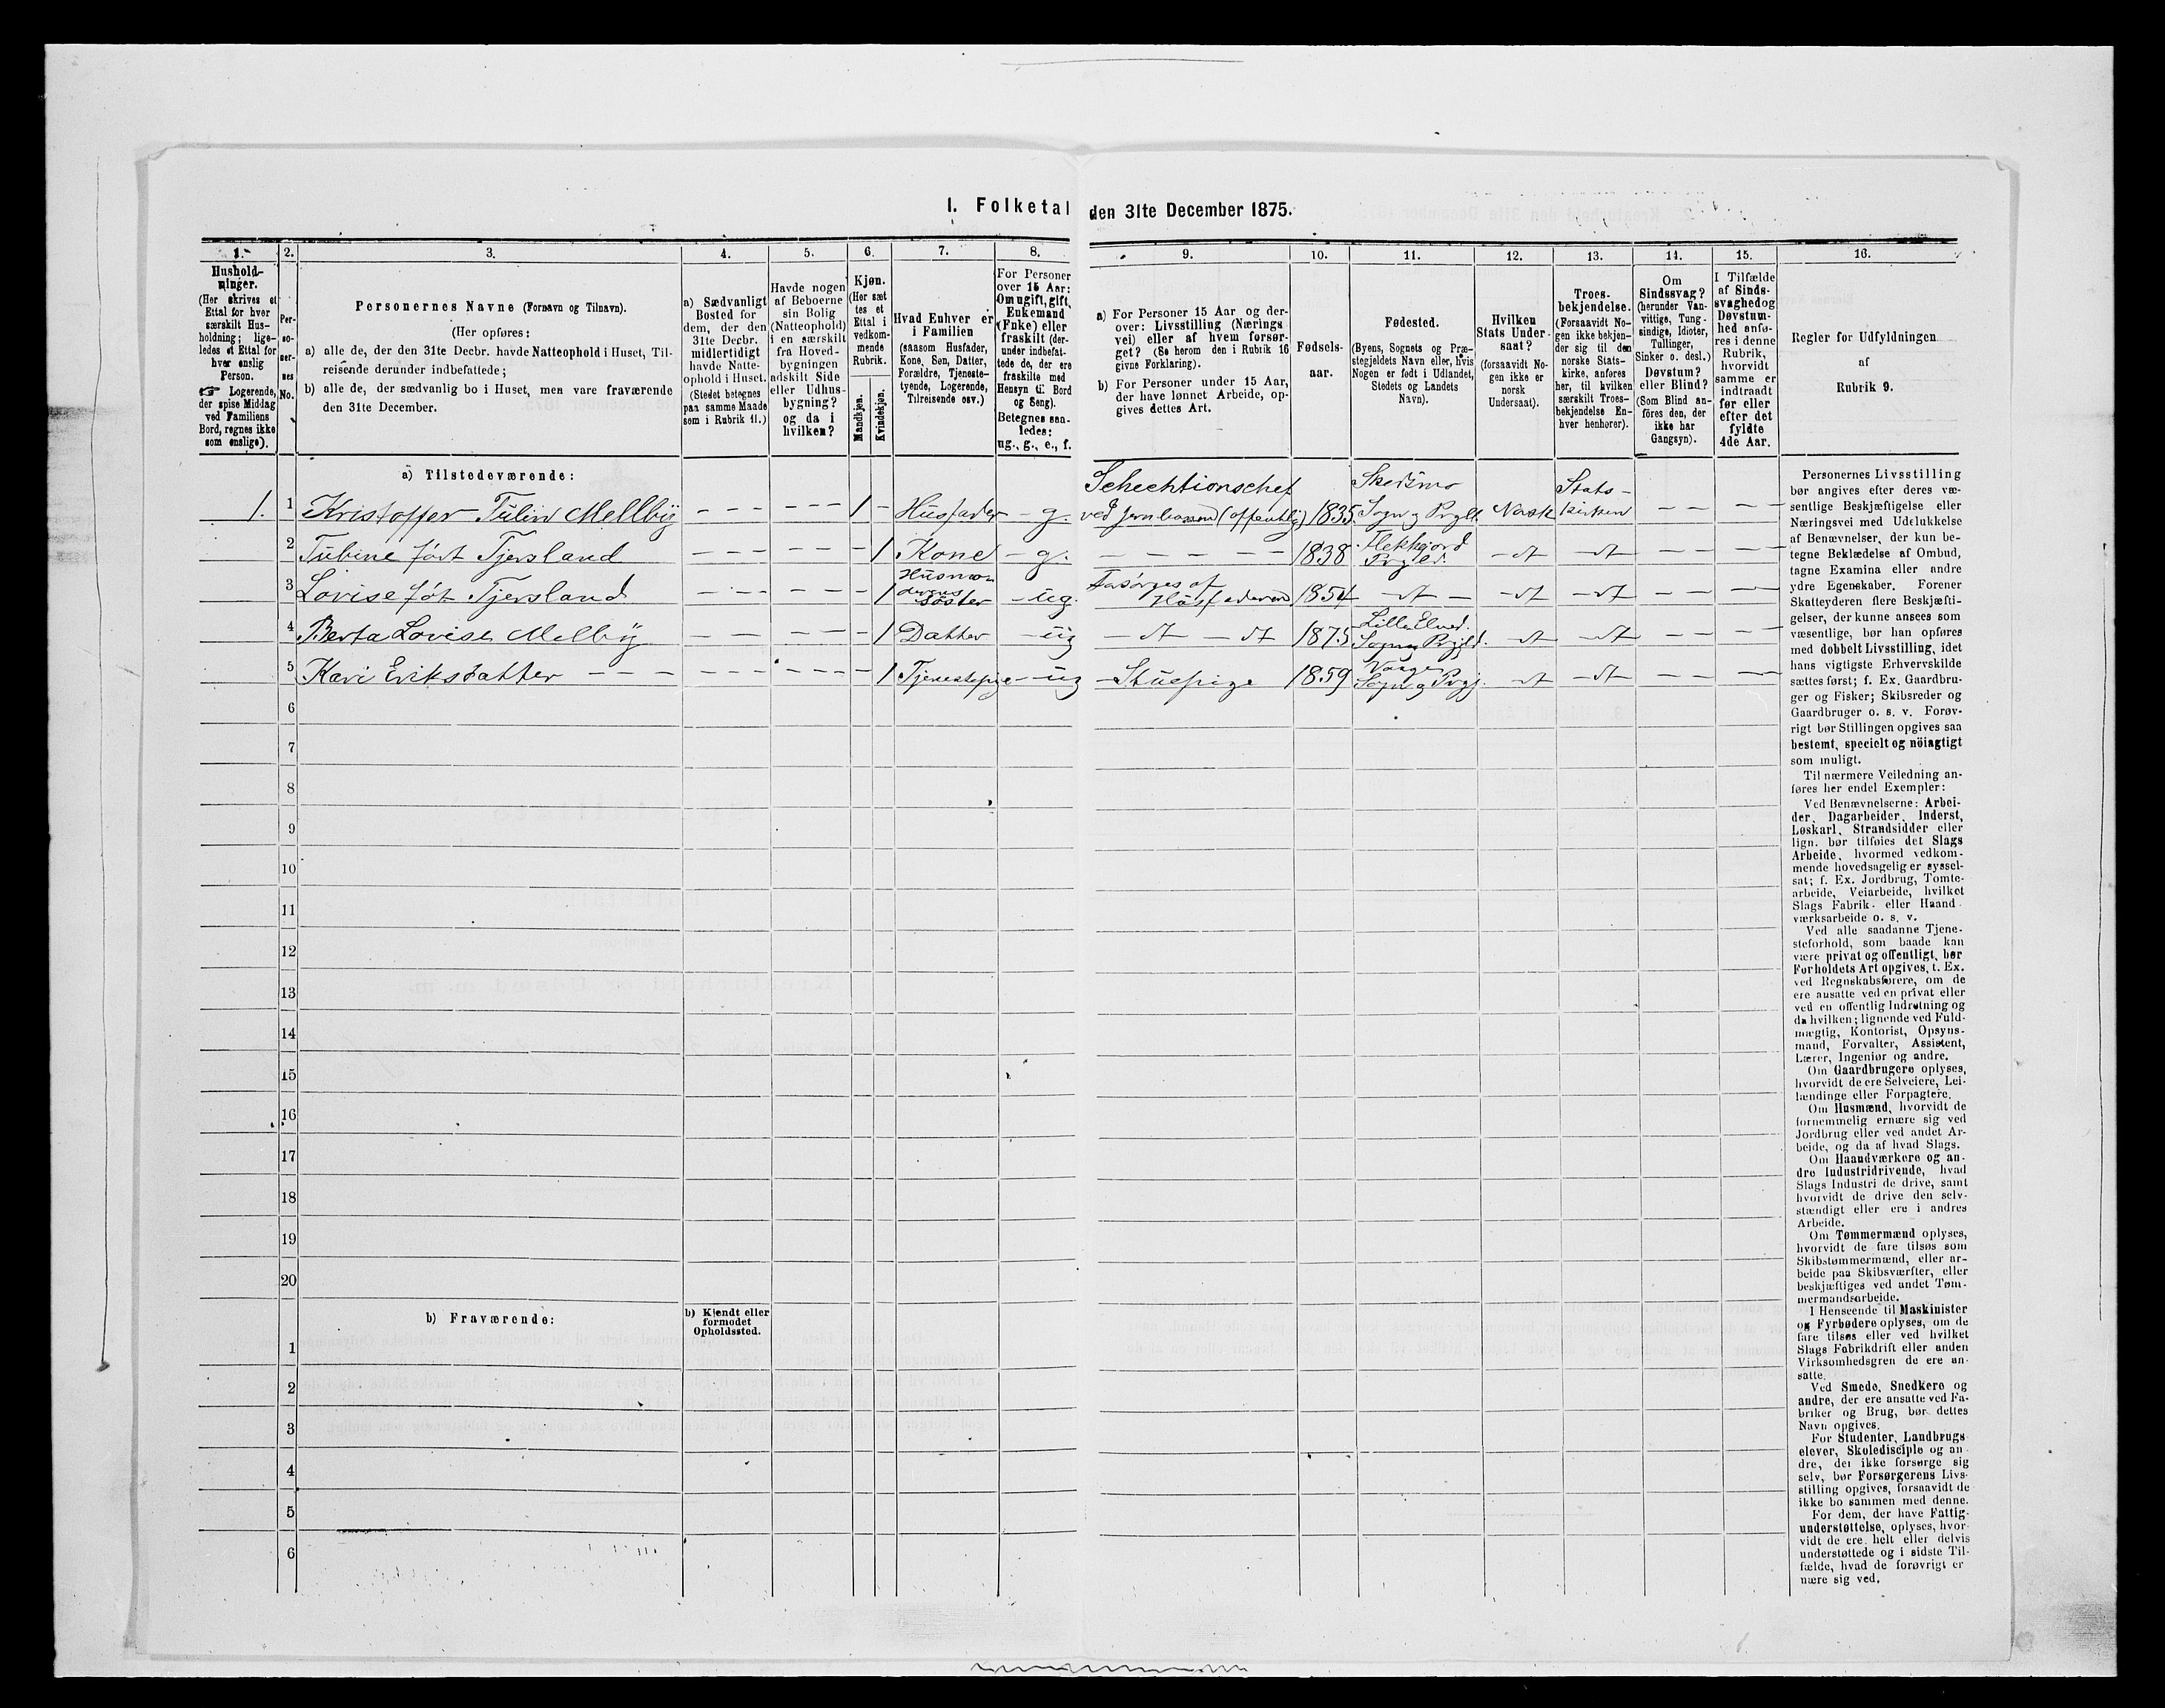 I. Folketal den 31te December 1875.
1.
Hushold-
ninger.
(Her skrives et
Ettal for hver
særskilt Hus-
holdning; lige-
ledes et Ettal for
hver enslig
Person.
☞ Logerende,
der spise Middag
ved Familiens
Bord, regnes ikke
som enslige).
2.
Per-
so-
ner-
nes
No.
3.
Personernes Navne (Fornavn og Tilnavn).
(Her opføres:
a) alle de, der den 31te Decbr. havde Natteophold i Huset, Til-
reisende derunder indbefattede;
b) alle de, der sædvanlig bo i Huset, men vare fraværende
den 31te December.
4.
a) Sædvanligt
Bosted for
dem, der den
31te Decbr.
midlertidigt
havde Natte-
ophold i Huset.
(Stedet betegnes
paa samme Maade
som i Rubrik 11.)
5.
Havde nogen
af Beboerne
sin Bolig
(Natteophold)
i en særskilt
fra Hoved-
bygningen
adskilt Side
eller Udhus-
bygning?
og da i
hvilken?
6.
Kjøn.
(Her sæt
tes et
Ettal i
vedkom-
mende
Rubrik.
Mandkjøn.
Kvindekjøn.
7.
Hvad Enhver er
i Familien
(saasom Husfader,
Kone, Søn, Datter,
Forældre, Tjeneste-
tyende, Logerende,
Tilreisende osv.)
8.
For Personer
over 15 Aar:
Om ugift, gift,
Enkemand
(Enke) eller
fraskilt (der-
under indbefat-
tede de, der ere
fraskilte med
Hensyn til Bord
og Seng).
Betegnes saa-
ledes:
ug., g., e., f.
9.
a) For Personer 15 Aar og der-
over: Livsstilling (Nærings
vei) eller af hvem forsør-
get? (Se herom den i Rubrik 16
givne Forklaring).
b) For Personer under 15 Aar,
der have lønnet Arbeide, op-
gives dettes Art.
10.
Fødsels-
aar.
11.
Fødested.
(Byens, Sognets og Præ-
stegjeldets Navn eller, hvis
Nogen er født i Udlandet,
Stedets og Landets
Navn).
12.
Hvilken
Stats Under-
saat?
(forsaavidt No-
gen ikke er
norsk
Undersaat).
13.
Troes-
bekjendelse.
(Forsaavidt No-
gen ikke bekjen-
der sig til den
norske Stats-
kirke, anføres
her, til hvilken
særskilt Troes-
bekjendelse En-
hver henhører).
14.
Om
Sindssvag?
(herunder Van-
vittige, Tung-
sindige, Idioter,
Tullinger,
Sinker o. desl.)
Døvstum?
eller Blind?
(Som Blind an-
føres den, der
ikke har
Gangsyn).
15.
I Tilfælde
af Sinds-
svaghed og
Døvstum-
hed anfø-
res i denne
Rubrik,
hvorvidt
samme er
indtraadt
før eller
efter det
fyldte
4de Aar.
16.
Regler for Udfyldningen
af
Rubrik 9.
a) Tilstedeværende:
1. 1 Kristoffer Tulin Mellby - - - - - - - 1 Husfader - g. Schechtionschef ved Jernbanen (offentlig) 1835. Skedsmo Sogn og Prgld. Norsk Stats-kirken - - - -
2 Tubine født Tjersland - - - - - - - 1 Kone - g. - - - - - 1838 Flekkejord Prgld. - dt - dt - - - - -
3 Lovise føt Tjersland - - - - - 1 Husmoderens Søster - ug. Forsørges af Husfaderen 1854 - dt - - dt - dt - - - -
4 Berta Lovise Melby - - - - - - 1 Datter - ug - dt - dt 1875 Lille Elved. Sogn og Prgjld. - dt - dt - - - -
5 Kari Eriksdatter - - - - - - - - 1 Tjenestepige - ug - Stuepige 1859 Vaage Sogn og Prgj. - dt - dt - - - -
6
7
8
9
10
11
12
13
14
15
16
17
18
19
20
b) Fraværende:
b) Kjendt eller
formodet
Opholdssted.
1
2
3
4
5
6
Personernes Livsstilling
bør angives efter deres væ-
sentlige Beskjæftigelse eller
Næringsvei med Udelukkelse
af Benævnelser, der kun be-
tegne Beklædelse af Ombud,
tagne Examina eller andre
ydre Egenskaber. Forener
Skatteyderen flere Beskjæfti-
gelser, der kunne ansees som
væsentlige, bør han opføres
med dobbelt Livsstilling, idet
hans vigtigste Erhvervskilde
sættes først; f. Ex. Gaardbru-
ger og Fisker; Skibsreder og
Gaardbruger o. s. v. Forøv-
rigt bør Stillingen opgives saa
bestemt, specielt og nöiagtigt
som muligt.
Til nærmere Veiledning an-
føres her endel Exempler:
Ved Benævnelserne: Arbei-
der, Dagarbeider, Inderst,
Løskarl, Strandsidder eller
lign. bør tilføies det Slags
Arbeide, hvormed vedkom-
mende hovedsagelig er syssel-
sat; f. Ex. Jordbrug, Tomte-
arbeide, Veiarbeide, hvilket
Slags Fabrik- eller Haand-
værksarbeide o. s. v.
Ved alle saadanne Tjene-
steforhold, som baade kan
være privat og offentligt, bør
Forholdets Art opgives, t. Ex.
ved Regnskabsførere, om de
ere ansatte ved en privat eller
ved en offentlig Indretning og
da hvilken; lignende ved Fuld-
mægtig, Kontorist, Opsyns-
mand, Forvalter, Assistent,
Lærer, Ingeniør og andre.
Om Gaardbrugere oplyses,
hvorvidt de ere Selveiere, Lei-
lændinge eller Forpagtere.
Om Husmænd, hvorvidt de
fornemmelig ernære sig ved
Jordbrug eller ved andet Ar-
beide, og da af hvad Slags.
Om Haandværkere og an-
dre Industridrivende, hvad
Slags Industri de drive, samt
hvorvidt de drive den selv-
stændigt eller ere i andres
Arbeide.
Om Tømmermænd oplyses,
hvorvidt de fare tilsøs som
Skibstømmermænd, eller ar-
beide paa Skibsværfter, eller
beskjæftiges ved andet Tøm-
mermandsarbeide.
I Henseende til Maskinister
og Fyrbødere oplyses, om de
fare tilsøs eller ved hvilket
Slags Fabrikdrift eller anden
Virksomhedsgren de ere an-
satte.
Ved Smede, Snedkere og
andre, der ere ansatte ved Fa-
briker og Brug, bør dettes
Navn opgives.
For Studenter, Landbrugs
elever, Skoledisciple og an-
dre, der ikke forsørge sig
selv, bør Forsørgerens Livs-
stilling opgives, forsaavidt de
ikke bo sammen med denne.
For dem, der have Fattig-
understøttelse, oplyses, hvor-
vidt de ere helt eller delvis
understøttede og i sidste Til-
fælde, hvad de forøvrigt er
nære sig ved.